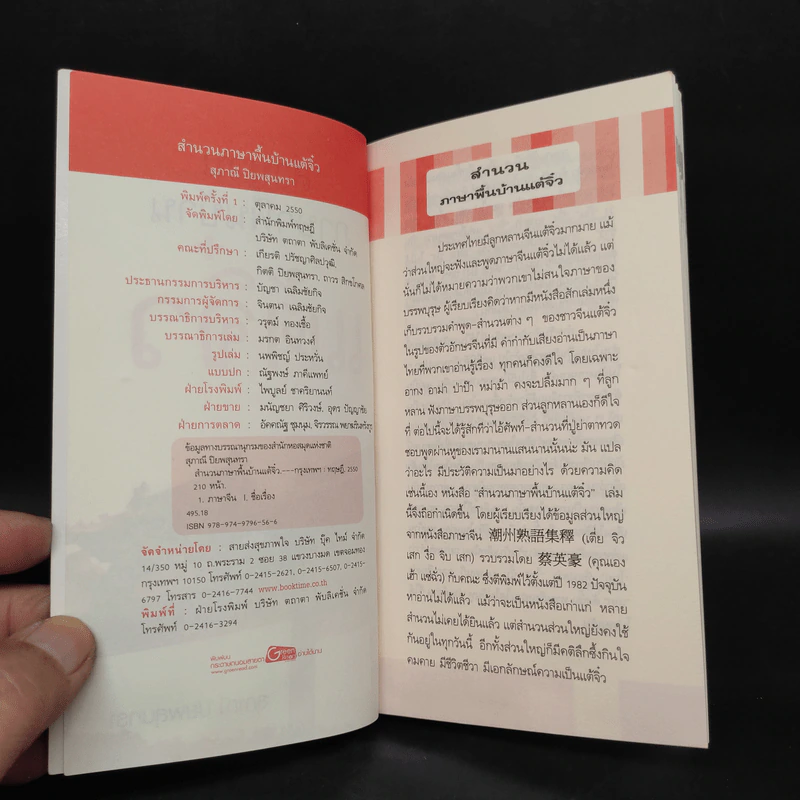 สำนวนภาษาพื้นบ้านแต้จิ๋ว
สุภาณี ปิยพสุนทรา
พิมพ์ครั้งที่ 1 : ตุลาคม 2550
จัดพิมพ์โดย : สำนักพิมพ์ทฤษฎี
บริษัท ตถาตา พับลิเคชั่น จำกัด
คณะที่ปรึกษา : เกียรติ ปรัชญาศิลปวุฒิ,
กิตติ ปิยพสุนทรา, ถาวร สิกขโกศล
ประธานกรรมการบริหาร : บัญชา เฉลิมชัยกิจ
กรรมการผู้จัดการ : จินตนา เฉลิมชัยกิจ
บรรณาธิการบริหาร : วรุตม์ ทองเชื้อ
บรรณาธิการเล่ม : มรกต อินทวงศ์
รูปเล่ม : นพพิชญ์ ประหวั่น
แบบปก : ณัฐพงษ์ ภาคีแพทย์
ฝ่ายโรงพิมพ์ : ไพบูลย์ ชาคริยานนท์
ฝ่ายขาย : มนัญชยา ศิริวงษ์, อุดร ปัญญาชัย
ฝ่ายการตลาด : อัคคณัฐ ชุมนุม, จิรวรรณ พยาฆรินทรังกูร
ข้อมูลทางบรรณานุกรมของสำนักหอสมุดแห่งชาติ
สุภาณี ปิยพสุนทรา
สำนวนภาษาพื้นบ้านแต้จิ๋ว.---กรุงเทพฯ : ทฤษฎี, 2550
210 หน้า.
1. ภาษาจีน I. ชื่อเรื่อง
495.18
ISBN 978-974-9796-56-6
จัดจำหน่ายโดย : สายส่งสุขภาพใจ บริษัท บุ๊ค ไทม์ จำกัด
14/350 หมู่ 10 ถ.พระราม 2 ซอย 38 แขวงบางมด เขตจอมทอง
กรุงเทพฯ 10150 โทรศัพท์ 0-2415-2621, 0-2415-6507, 0-2415-
6797 โทรสาร 0-2416-7744 www.booktime.co.th
พิมพ์ที่ : ฝ่ายโรงพิมพ์ บริษัท ตถาตา พับลิเคชั่น จำกัด
โทรศัพท์ 0-2416-3294
พิมพ์บน
กระดาษถนอมสายตา Green Read อ่านได้นาน
www.greenread.com
สำนวน
ภาษาพื้นบ้านแต้จิ๋ว
ประเทศไทยมีลูกหลานจีนแต้จิ๋วมากมาย แม้
ว่าส่วนใหญ่จะฟังและพูดภาษาจีนแต้จิ๋วไม่ได้แล้ว แต่
นั่นก็ไม่ได้หมายความว่าพวกเขาไม่สนใจภาษาของ
บรรพบุรุษ ผู้เรียบเรียงคิดว่าหากมีหนังสือสักเล่มหนึ่ง
เก็บรวบรวมคำพูด-สำนวนต่าง ๆ ของชาวจีนแต้จิ๋ว
ในรูปของตัวอักษรจีนที่มี คำกำกับเสียงอ่านเป็นภาษา
ไทยที่พวกเขาอ่านรู้เรื่อง ทุกคนก็คงดีใจ โดยเฉพาะ
อากง อาม่า ป่าป๊า หม่าม้า คงจะปลื้มมาก ๆ ที่ลูก
หลาน ฟังภาษาบรรพบุรุษออก ส่วนลูกหลานเองก็ดีใจ
ที่ ต่อไปนี้จะได้รู้สักทีว่าไอ้ศัพท์-สำนวนที่ปู่ย่าตาทวด
ชอบพูดผ่านหูของเรามานานแสนนานนั้นน่ะ มัน แปล
ว่าอะไร มีประวัติความเป็นมาอย่างไร ด้วยความคิด
เช่นนี้เอง หนังสือ "สำนวนภาษาพื้นบ้านแต้จิ๋ว" เล่ม
นี้จึงถือกำเนิดขึ้น โดยผู้เรียบเรียงได้ข้อมูลส่วนใหญ่
จากหนังสือภาษาจีน 潮州熟語集釋 (เตี่ย จิว
เสก งื่อ จิบ เสก) รวบรวมโดย 蔡英豪 (คุณเอง
เฮ้า แซ่ฉั่ว) กับคณะ ซึ่งตีพิมพ์ไว้ตั้งแต่ปี 1982 ปัจจุบัน
หาอ่านไม่ได้แล้ว แม้ว่าจะเป็นหนังสือเก่าแก่ หลาย
สำนวนไม่เคยได้ยินแล้ว แต่สำนวนส่วนใหญ่ยังคงใช้
กันอยู่ในทุกวันนี้ อีกทั้งส่วนใหญ่ก็มีคติลึกซึ้งกินใจ
คมคาย มีชีวิตชีวา มีเอกลักษณ์ความเป็นแต้จิ๋ว